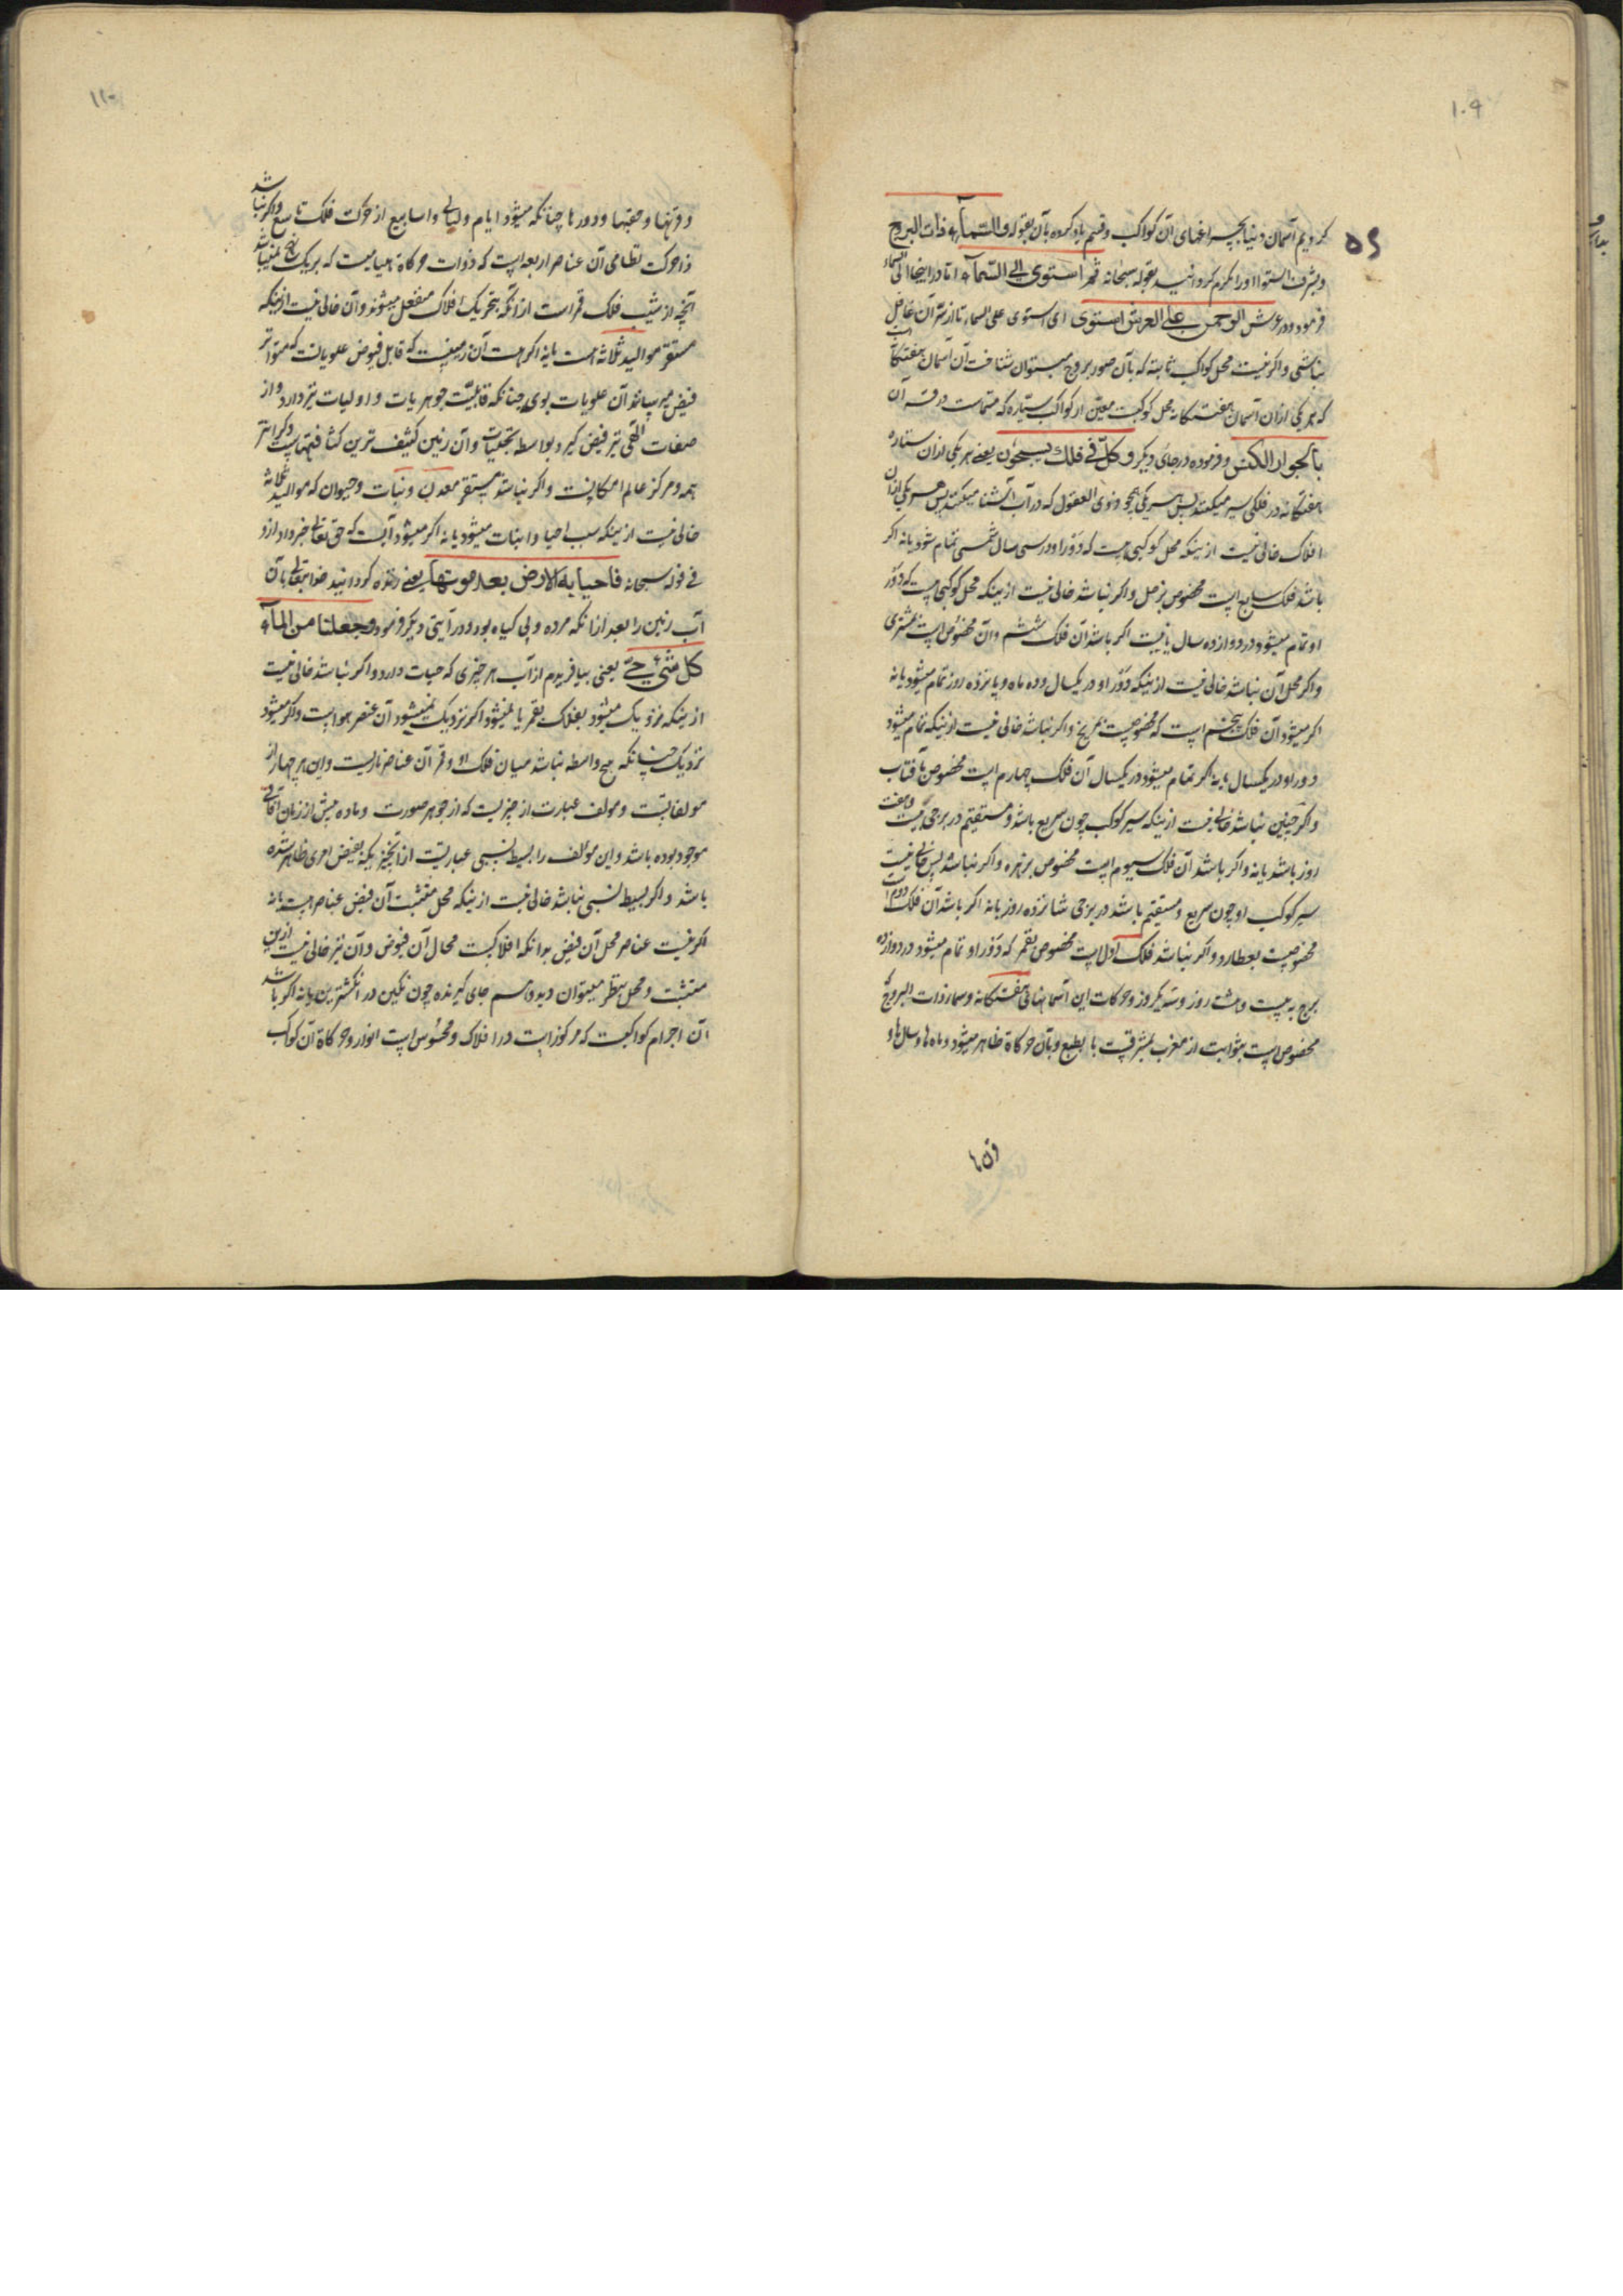 ۱۰۹
کردیم آسمان دنیا بچراغهای آن کواکب و قسم یاد کرده بآن بقوله والسّمآء ذات البروج
۵۹
و بشرف استوا او را مکرم کردانید بقوله سبحانه ثم استوی الی السّمآء اما در اینجا الی السماء
فرمود و در عرش الرحمن علی العرش استوی ای استوی علی السماء تا از سرّ آن غافل
نباشی و اکر نیست محل کواکب ثابته که بآن صور بروج میتوان شناخت آن آسمان هفتکانه است
که هر یکی از ان آسمان هفتکانه محل کوکبیست معیّن از کواکب سیّاره که
بالجوار الکنس و فرموده در جای دیکر و کلّ فی فلك یسبحون یعنی هر یکی از ان ستاره
هفتکانه در فلکی سیر میکنند پس هر یکی همچو ذوی العقول که در آب آشنا میکنند پس هر یکی از ان
افلاک خالی نیست ازینکه محل کوکبی هست که دَوْر او در سی سال شمسی تمام شود یا نه اکر
باشد فلک سابع است مخصوص بزحل و اکر نباشد خالی نیست ازینکه محل کوکبی هست که دَوْر
او تمام میشود در دوازده سال یا نیست اکر باشد آن فلک ششم و آن مخصوص است بمشتری
و اکر محل آن نباشد خالی نیست ازینکه دَوْر او در یکسال و ده ماه و پانزده روز تمام میشود یا نه
اکر میشود آن فلک پنجم است که مخصوصست بمریخ و اکر نباشد خالی نیست ازینکه تمام میشود
دور او در یکسال یا نه اکر تمام میشود در یکسال آن فلک چهارم است مخصوص بآفتاب
و اکر چنین نباشد خالی نیست ازینکه سیر کوکب چون سریع باشد و مستقیم در برجی بیست و هفت
روز باشد یا نه و اکر باشد آن فلک سیوم است مخصوص بزهره و اکر نباشد پس خالی نیست
سیر کوکب او چون سریع و مستقیم باشد در برجی شانزده روز یا نه اکر باشد آن فلک دوم است
مخصوصست بعطارد و اکر نباشد فلک اول است مخصوص بقمر که دَوْر او تمام میشود در دوازده
برج به بیست و هشت روز و حرکات این آسمانهای هفتکانه و سماء ذات البروج که
مخصوص است بثوابت از مغرب بمشرقست بالطبع و بآن حرکاة ظاهر میشود و ماه ها و سال ها و
قرنها
۱۱۰
و قرنها و حقبها و دورها چنانکه میشود ایام و لیالی و اسابیع از حرکت فلک تاسع و اکر نباشد
ذا حرکت نظامی آن عناصر اربعه است که ذوات حرکاة که بر یک نهج نمیباشد
آنچه از شیب فلک قمر است از آنکه بتحریک افلاک منفعل میشوند و آن خالی نیست ازینکه
مستقر موالید ثلاثه است یا نه اکر هست آن زمینست که قابل فیوض علویاتست که متواتر
فیض میرسانند آن علویات بوی چنانکه قابلیّت جوهریات و اولیات نیز دارد و از
صفات الهی نیز فیض کیرد بواسطه تجلیات و آن زمین کثیف ترین کثافتهاست و کران تر
همه و مرکز عالم امکانست و اکر نباشد مستقر معدن و نبات و حیوان که موالید ثلاثه
خالی نیست ازینکه سبب احیا و انبات میشود یا نه اکر میشود آبست که حق تعالی خبر داد ازو
فی قوله سبحانه فاحیا به الارض بعد موتها یعنی زنده کردانید خدایتعالی بآن
آب زمین را بعد از انکه مرده و بی کیاه بود و در آیتی دیکر فرمود وجعلنا من المآء
کل شئ حیّ یعنی بیافریدم از آب هر چیزی که حیات دارد و اکر نباشد خالی نیست
ازینکه نزدیک میشود بفلک قمر یا نمیشود اکر نزدیک نمیشود آن عنصر هوا است و اکر میشود
نزدیک چنانکه هیچ واسطه نباشد میان فلک او و قمر آن عناصر ناریست و این هر چهار از
مولفاتست و مولف عبارت از چیزیست که از جوهر صورت و ماده پیش از زمان آنی
موجود بوده باشد و این مولف را بسیط نسبی عبارتست از آن چیزیکه بفیض امری ظاهر شده
باشد و اکر بسیط نسبی نباشد خالی نیست ازینکه محل متشبث آن فیض عناصر هست یا نه
اکر نیست عناصر محل آن فیض بدانکه افلاکست محال آن فیوض و آن نیز خالی نیست ازین
متشبث و محل بنظر میتوان دید و اسم جای کیرنده چون نکین در انکشترین یا نه اکر باشد
آن اجرام کواکبست که مرکوز است در افلاک و محسوس است انوار و حرکاة آن کواکب